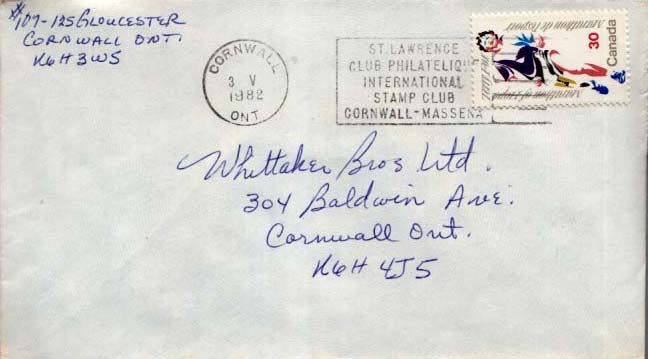 #107-125 GLOUCESTER
CORNWALL ONT.
K6H 3W5
CORNWALL
3 V
1982
ONT
ST. LAWRENCE
CLUB PHILATELIQUE
INTERNATIONAL
STAMP CLUB
CORNWALL-MASSENA
30
Canada
Marathon de l'espoir
Marathon of Hope
Whittaker Bros Ltd.
304 Baldwin Ave.
Cornwall Ont.
K6H 4J5